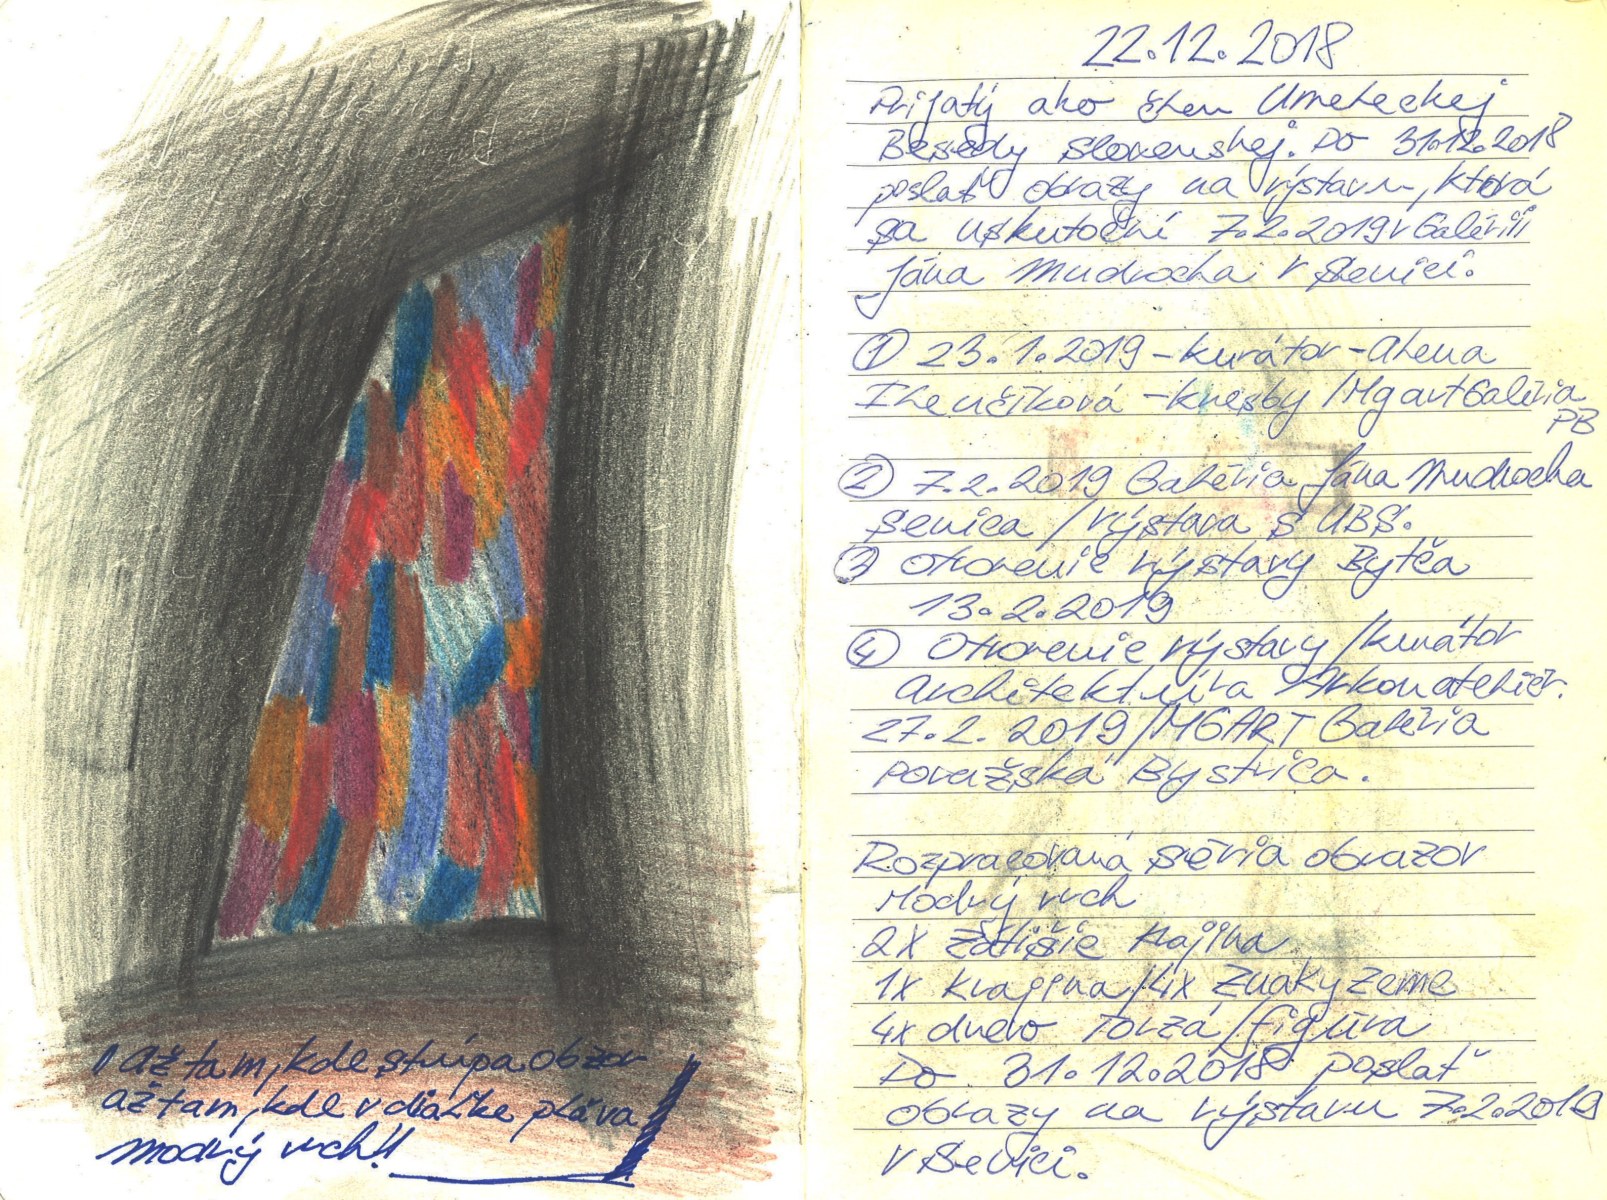 až tam, kde stúpa obzor
až tam, kde v diaľke pláva
Modrý vrch!!
22.12.2018
Prijatý ako člen Umeleckej
Besedy Slovenskej. Do 31.12.2018
poslať obrazy na výstavu, ktorá
sa uskutoční 7.2.2019 v Galérii
Jána Mudrocha v Senici.
① 23.1.2019 – kurátor – Alena
Ilenčíková – kresby / Mg art Galéria
PB
② 7.2.2019 Galéria Jána Mudrocha
Senica / výstava s UBS.
③ Otvorenie výstavy Bytča
13.2.2019
④ Otvorenie výstavy / kurátor
architektúra Arkonateliér.
27.2.2019 / MGART Galéria
Považská Bystrica.
Rozpracovaná séria obrazov
Modrý vrch
2x Zátišie Krajina
1x Krajina / 4x Znaky Zeme
4x drevo Torzá / figúra
Do 31.12.2018 poslať
obrazy na výstavu 7.2.2019
v Senici.